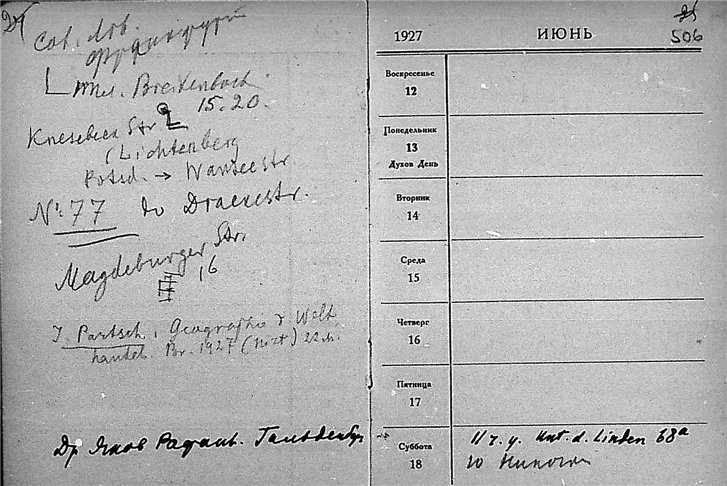 сов.
L Mns. Breitenbach
15.20.
Knesebeck Str
(Lichtenberg
Potsd. → Wanseestr.
№ 77 до Drakestr.
Magdeburger Str.
16
J. Partsch. Geographie d Welt
handel. Br. 1927 (Hirt) 22 M.
Др Яков Рафаил.
1927 ИЮНЬ 506
Воскресенье
12
Понедельник
13
Духов День
Вторник
14
Среда
15
Четверг
16
Пятница
17
Суббота 11 ч. у. Unt. d. Linden 68a
18